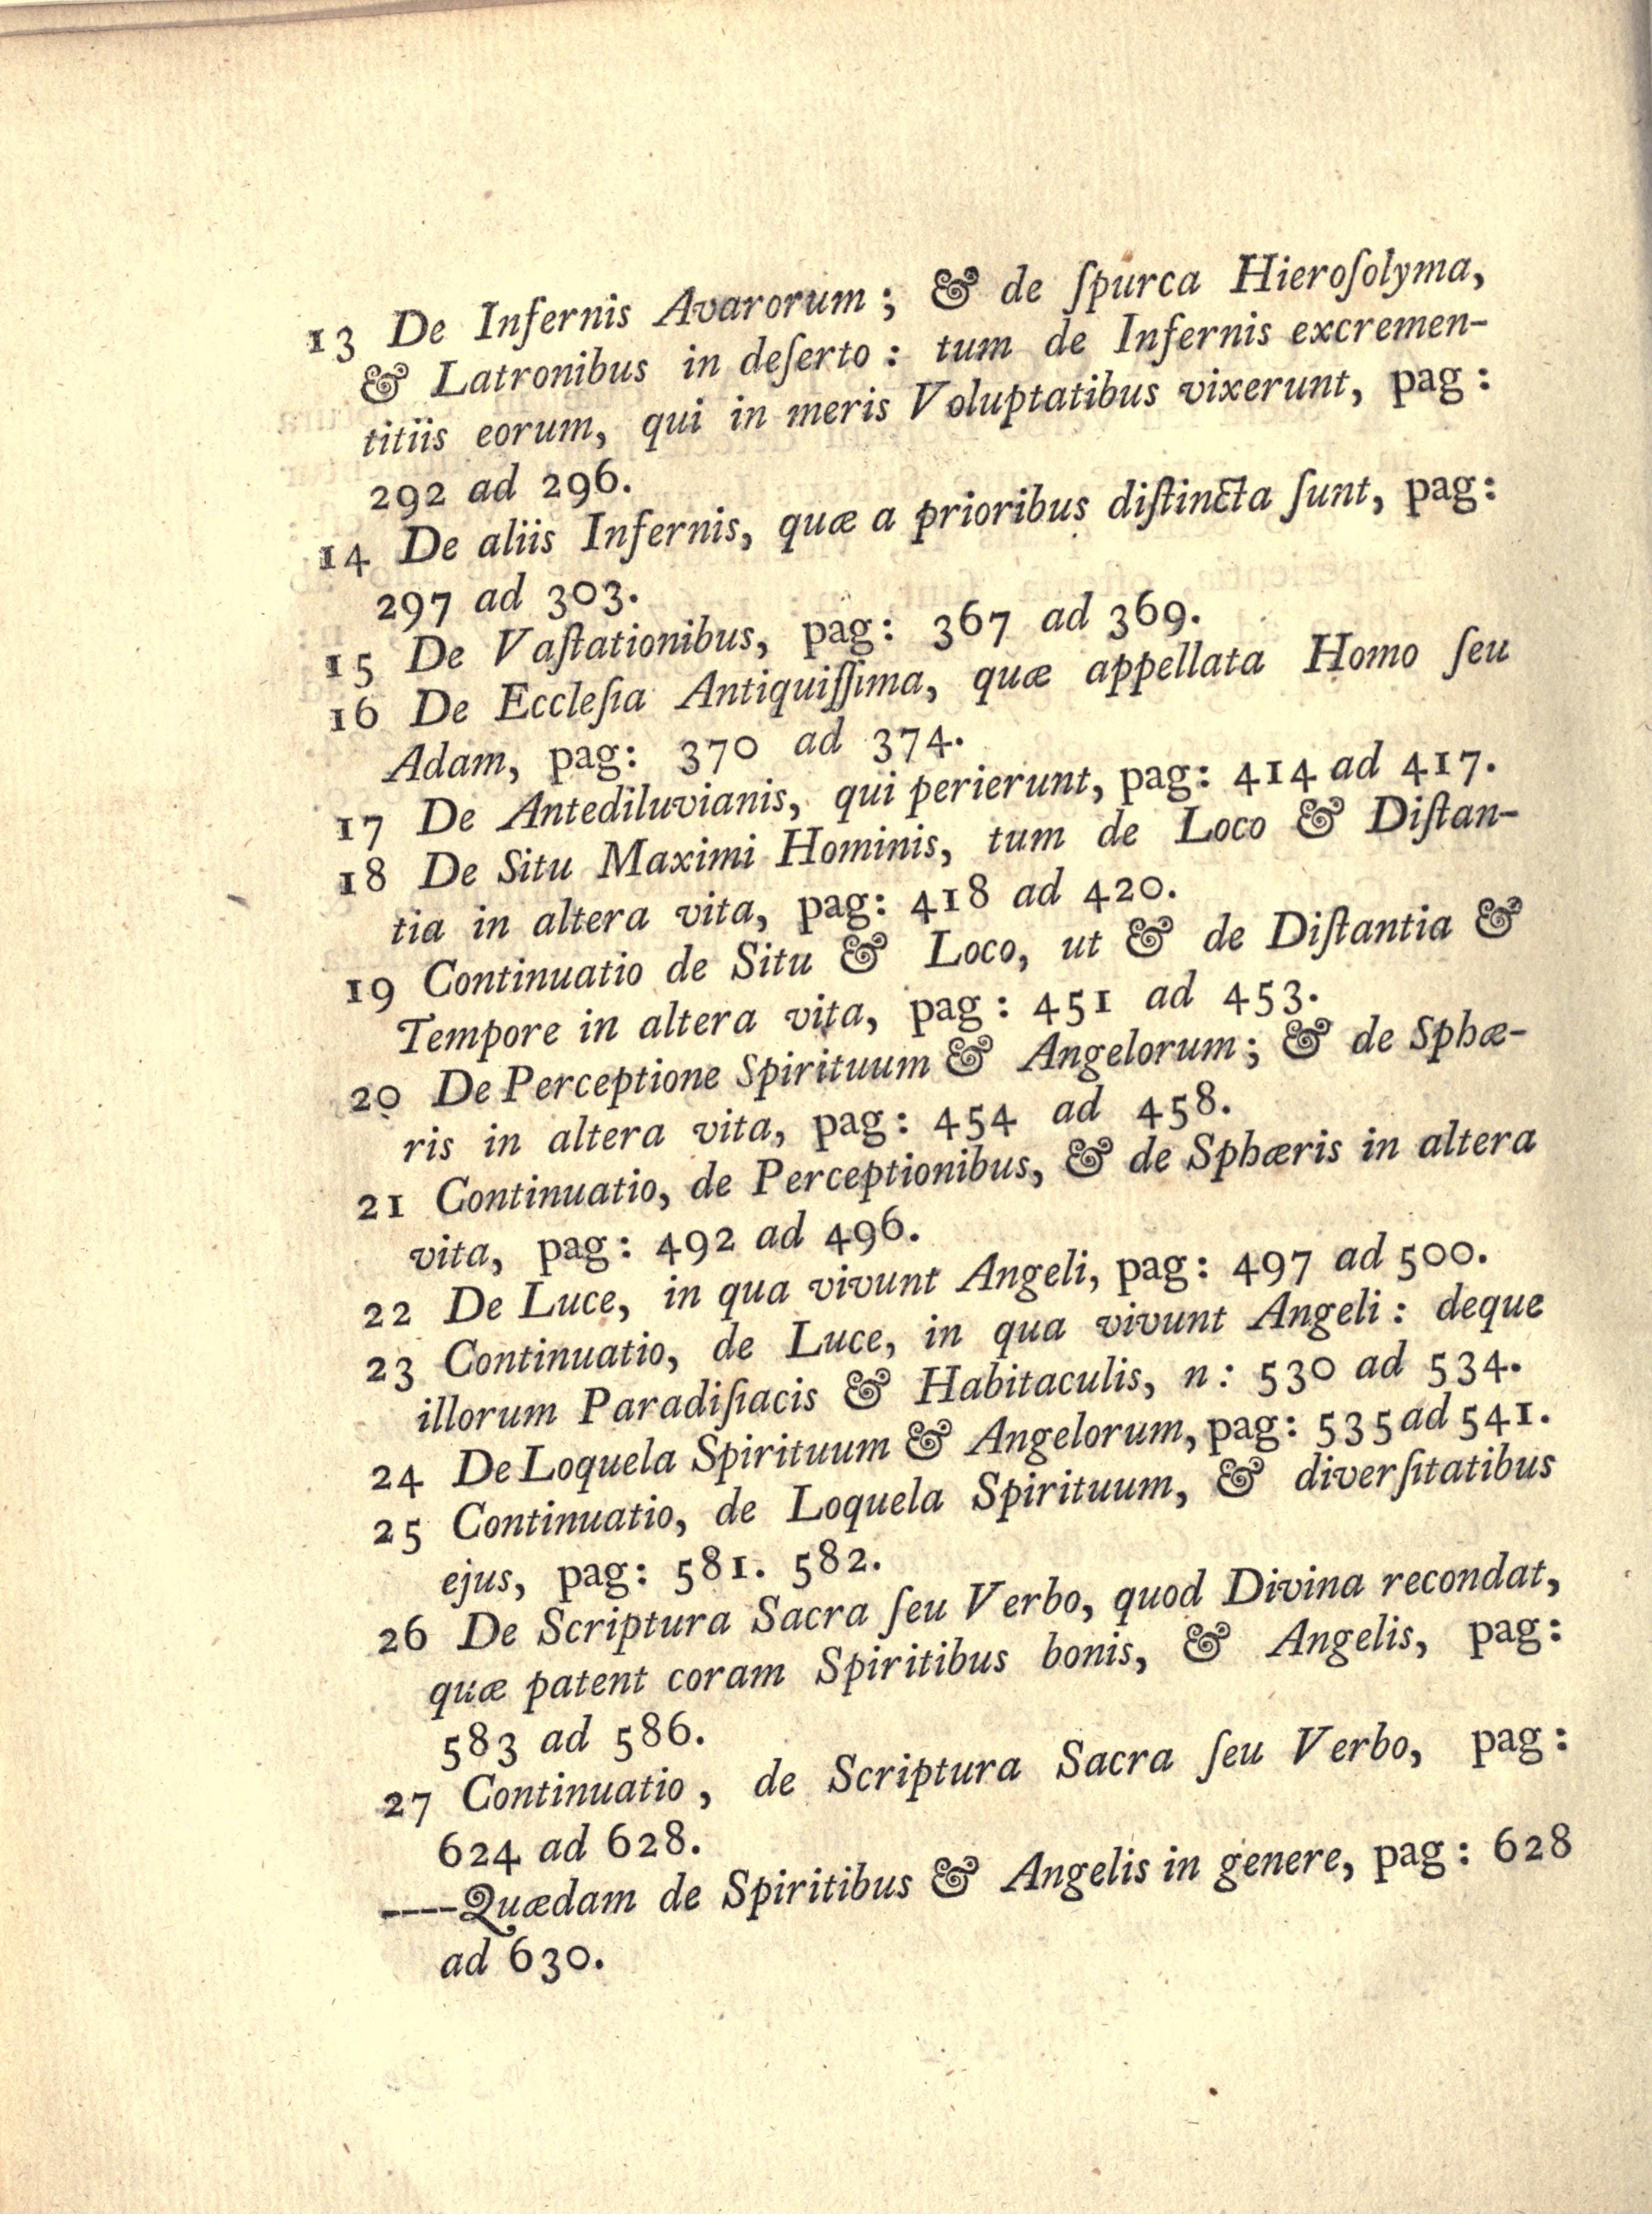 13 De Infernis Avarorum; & de ſpurca Hieroſolyma,
& Latronibus in deſerto: tum de Infernis excremen-
titiis eorum, qui in meris Voluptatibus vixerunt, pag:
292 ad 296.
14 De aliis Infernis, quæ a prioribus diſtincta ſunt, pag:
297 ad 303.
15 De Vaſtationibus, pag: 367 ad 369.
16 De Eccleſia Antiquiſſima, quæ appellata Homo ſeu
Adam, pag: 370 ad 374.
17 De Antediluvianis, qui perierunt, pag: 414 ad 417.
18 De Situ Maximi Hominis, tum de Loco & Diſtan-
tia in altera vita, pag: 418 ad 420.
19 Continuatio de Situ & Loco, ut & de Diſtantia &
Tempore in altera vita, pag: 451 ad 453.
20 De Perceptione Spirituum & Angelorum; & de Sphæ-
ris in altera vita, pag: 454 ad 458.
21 Continuatio, de Perceptionibus, & de Sphæris in altera
vita, pag: 492 ad 496.
22 De Luce, in qua vivunt Angeli, pag: 497 ad 500.
23 Continuatio, de Luce, in qua vivunt Angeli: deque
illorum Paradiſiacis & Habitaculis, n: 530 ad 534.
24 De Loquela Spirituum & Angelorum, pag: 535 ad 541.
25 Continuatio, de Loquela Spirituum, & diverſitatibus
ejus, pag: 581. 582.
26 De Scriptura Sacra ſeu Verbo, quod Divina recondat,
quæ patent coram Spiritibus bonis, & Angelis, pag:
583 ad 586.
27 Continuatio, de Scriptura Sacra ſeu Verbo, pag:
624 ad 628.
----Quædam de Spiritibus & Angelis in genere, pag: 628
ad 630.